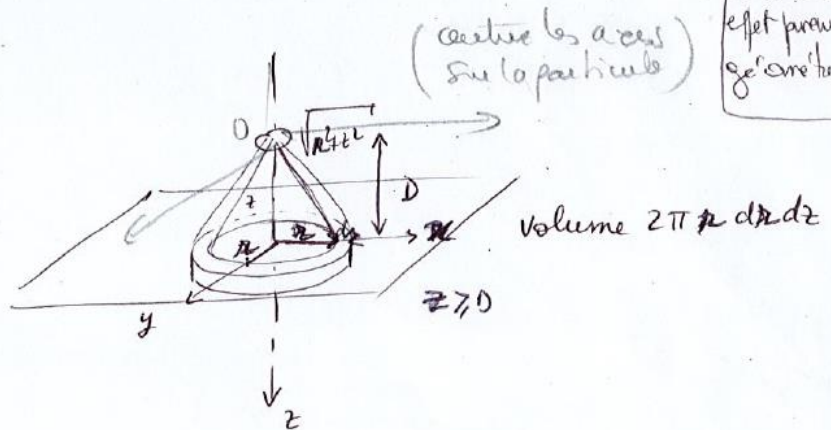 (centrer les axes
sur la particule)
effet purem
géomét
O
√r²+z²
D
z
r
r
dr
x
volume 2π r dr dz
z ⩾ D
y
z